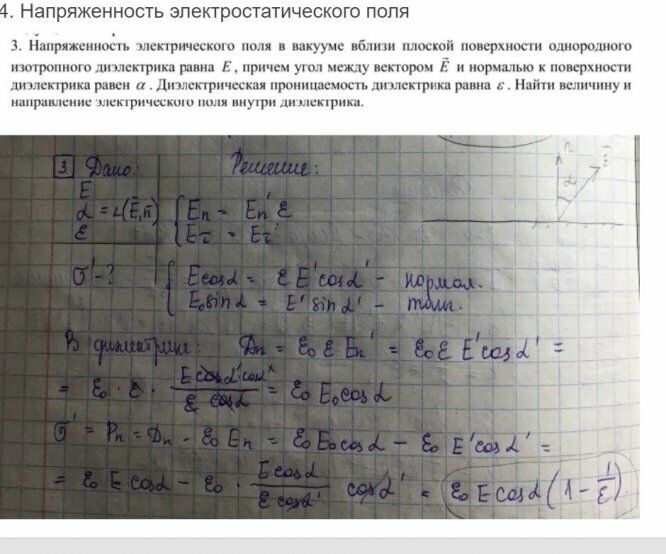 4. Напряженность электростатического поля
3. Напряженность электрического поля в вакууме вблизи плоской поверхности однородного
изотропного диэлектрика равна E, причем угол между вектором E⃗ и нормалью к поверхности
диэлектрика равен α. Диэлектрическая проницаемость диэлектрика равна ε. Найти величину и
направление электрического поля внутри диэлектрика.
3 Дано: Решение:
E
α = ∠(E⃗,n⃗)
ε
{ En = En' ε
Eτ = Eτ'
n E⃗ α
σ' - ?
{ E cosα = ε E' cosα' - нормал.
E₀ sinα = E' sinα' -
В диэлектрике: Dn = ε₀ ε En' = ε₀ ε E' cosα' =
= ε₀ · ε · = ε₀ E₀ cosα
σ' = Pn = Dn - ε₀ En = ε₀ E₀ cosα - ε₀ E' cosα' =
= ε₀ E cosα - ε₀ · E cosα / ε cosα' cosα' = ε₀ E cosα (1 - 1/ε)